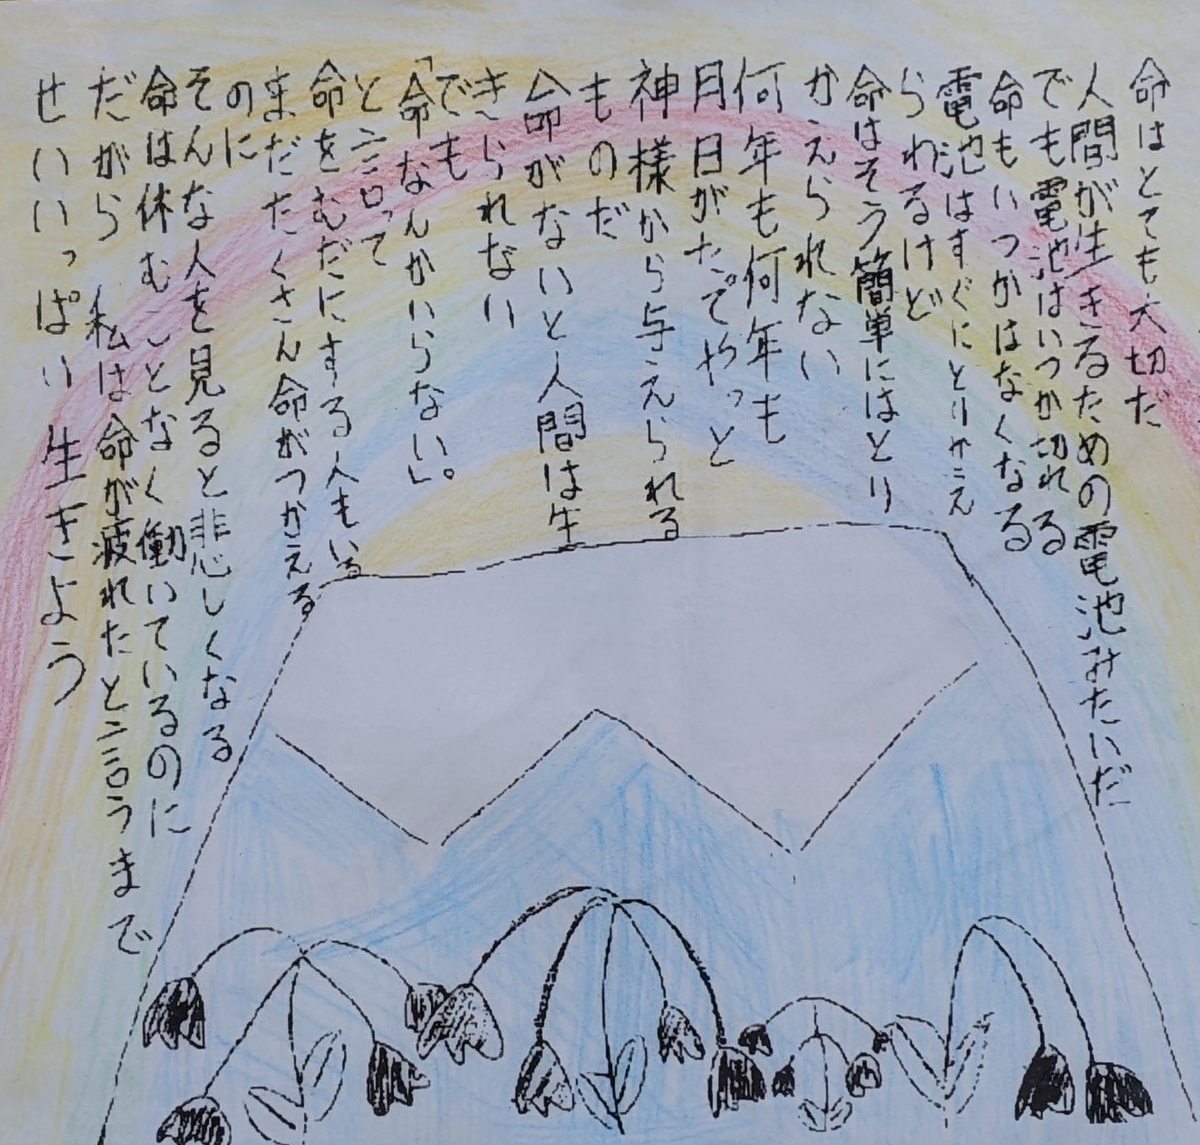 命はとても大切だ
人間が生きるための電池みたいだ
でも電池はいつか切れる
命もいつかはなくなる
電池はすぐにとりかえ
られるけど
命はそう簡単にはとり
かえられない
何年も何年も
月日がたってやっと
神様から与えられる
ものだ
命がないと人間は生
きられない
でも
「命なんかいらない。」
と言って
命をむだにする人もいる
まだたくさん命がつかえる
のに
そんな人を見ると悲しくなる
命は休むことなく働いているのに
だから 私は命が疲れたと言うまで
せいいっぱい生きよう